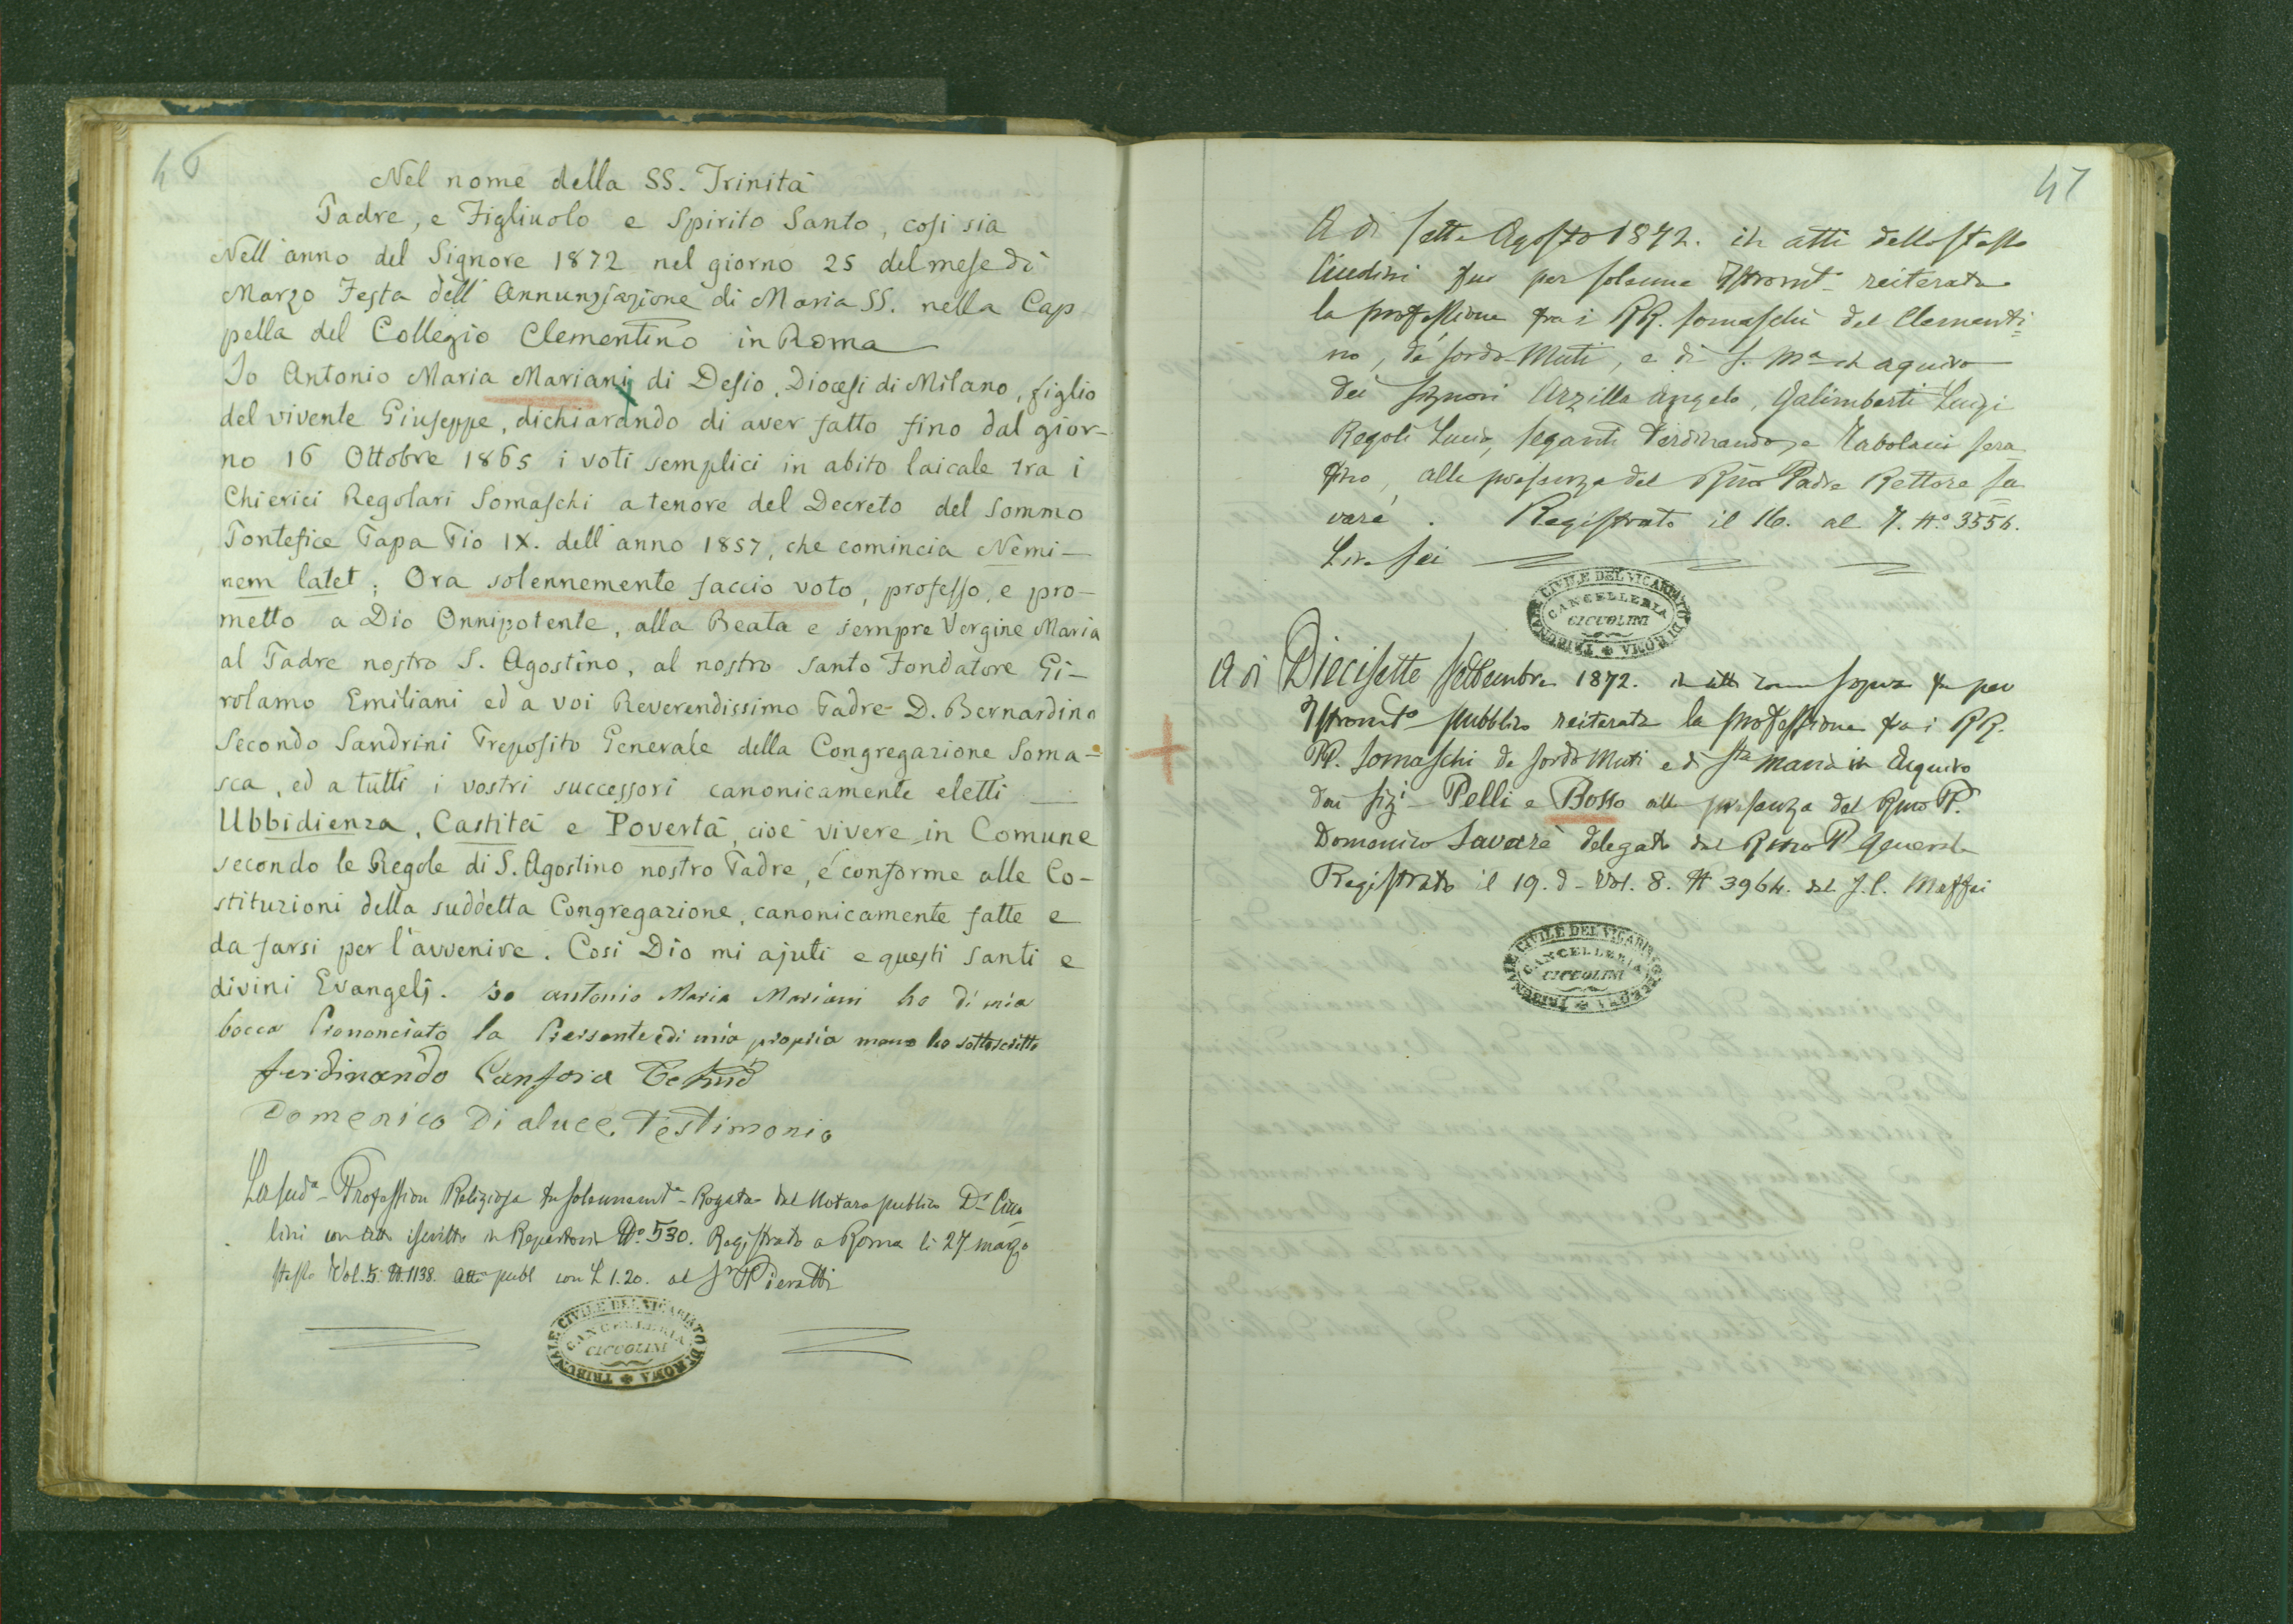 46
Nel nome della SS. Trinità
Padre, e Figliuolo e Spirito Santo, così sia
Nell'anno del Signore 1872 nel giorno 25 del mese di
Marzo Festa dell'Annunziazione di Maria SS. nella Cap
pella del Collegio Clementino in Roma
Io Antonio Maria Mariani di Desio, Diocesi di Milano, figlio
del vivente Giuseppe, dichiarando di aver fatto fino dal gior-
no 16 Ottobre 1865 i voti semplici in abito laicale tra i
Chierici Regolari Somaschi a tenore del Decreto del Sommo
Pontefice Papa Pio IX. dell'anno 1857, che comincia Nemi-
nem latet; Ora solennemente faccio voto, professo, e pro-
metto a Dio Onnipotente, alla Beata e sempre Vergine Maria
al Padre nostro S. Agostino, al nostro Santo Fondatore Gi-
rolamo Emiliani ed a voi Reverendissimo Padre D. Bernardino
Secondo Sandrini Preposito Generale della Congregazione Soma-
sca, ed a tutti i vostri successori canonicamente eletti
Ubbidienza, Castità e Povertà, cioè vivere in Comune
secondo le Regole di S. Agostino nostro Padre, é conforme alle Co-
stituzioni della suddetta Congregazione, canonicamente fatte e
da farsi per l'avvenire. Così Dio mi ajuti e questi santi e
divini Evangelj. Io antonio Maria Mariani ho di mia
bocca Prononciato la Presente e di mia propria mano ho sottoscritto
ferdinando Canfora
Domenico Di aluce Testimonio
La sud.a Profession Religiosa fu solennem.te Rogata dal Notaro pubblico D. Cicco
lini con atto iscritto in Repertorio N.o 530. Registrato a Roma li 27 marzo
stesso Vol. 5. N. 1138. Atti publ con L 1.20. al S.r Pieratti
TRIBUNALE CIVILE DEL VICARIATO DI ROMA
CANCELLERIA
CICCOLINI
47
A di sette Agosto 1872. in atti dello stesso
fu per solenne Istrom.to reiterata
la professione fra i RR. Somaschi del Clementi
no, de' sordo-Muti, e di S. M.a in Aquiro
dei signori Arzilla Angelo, Galimberti Luigi
Regoli Lucio, Seganti Ferdinando, e Sera
fino, alla presenza del Rmo Padre Rettore Sa
varé. Registrato il 16. al 7. N.o 3556.
Lire sei
TRIBUNALE CIVILE DEL VICARIATO DI ROMA
CANCELLERIA
CICCOLINI
A di Diecisette Settembre 1872. in atti come sopra fu per
Istrom.to pubblico reiterata la professione fra i RR.
PP. Somaschi de sordo Muti e di S.ta Maria in Aquiro
dai Sig.i Pelli e Bosso alla presenza del Rmo P.
Domenico Savarè delegato dal Rmo P Generale
Registrato il 19. d. Vol. 8. N 3964. dal Maffei
TRIBUNALE CIVILE DEL VICARIATO DI ROMA
CANCELLERIA
CICCOLINI